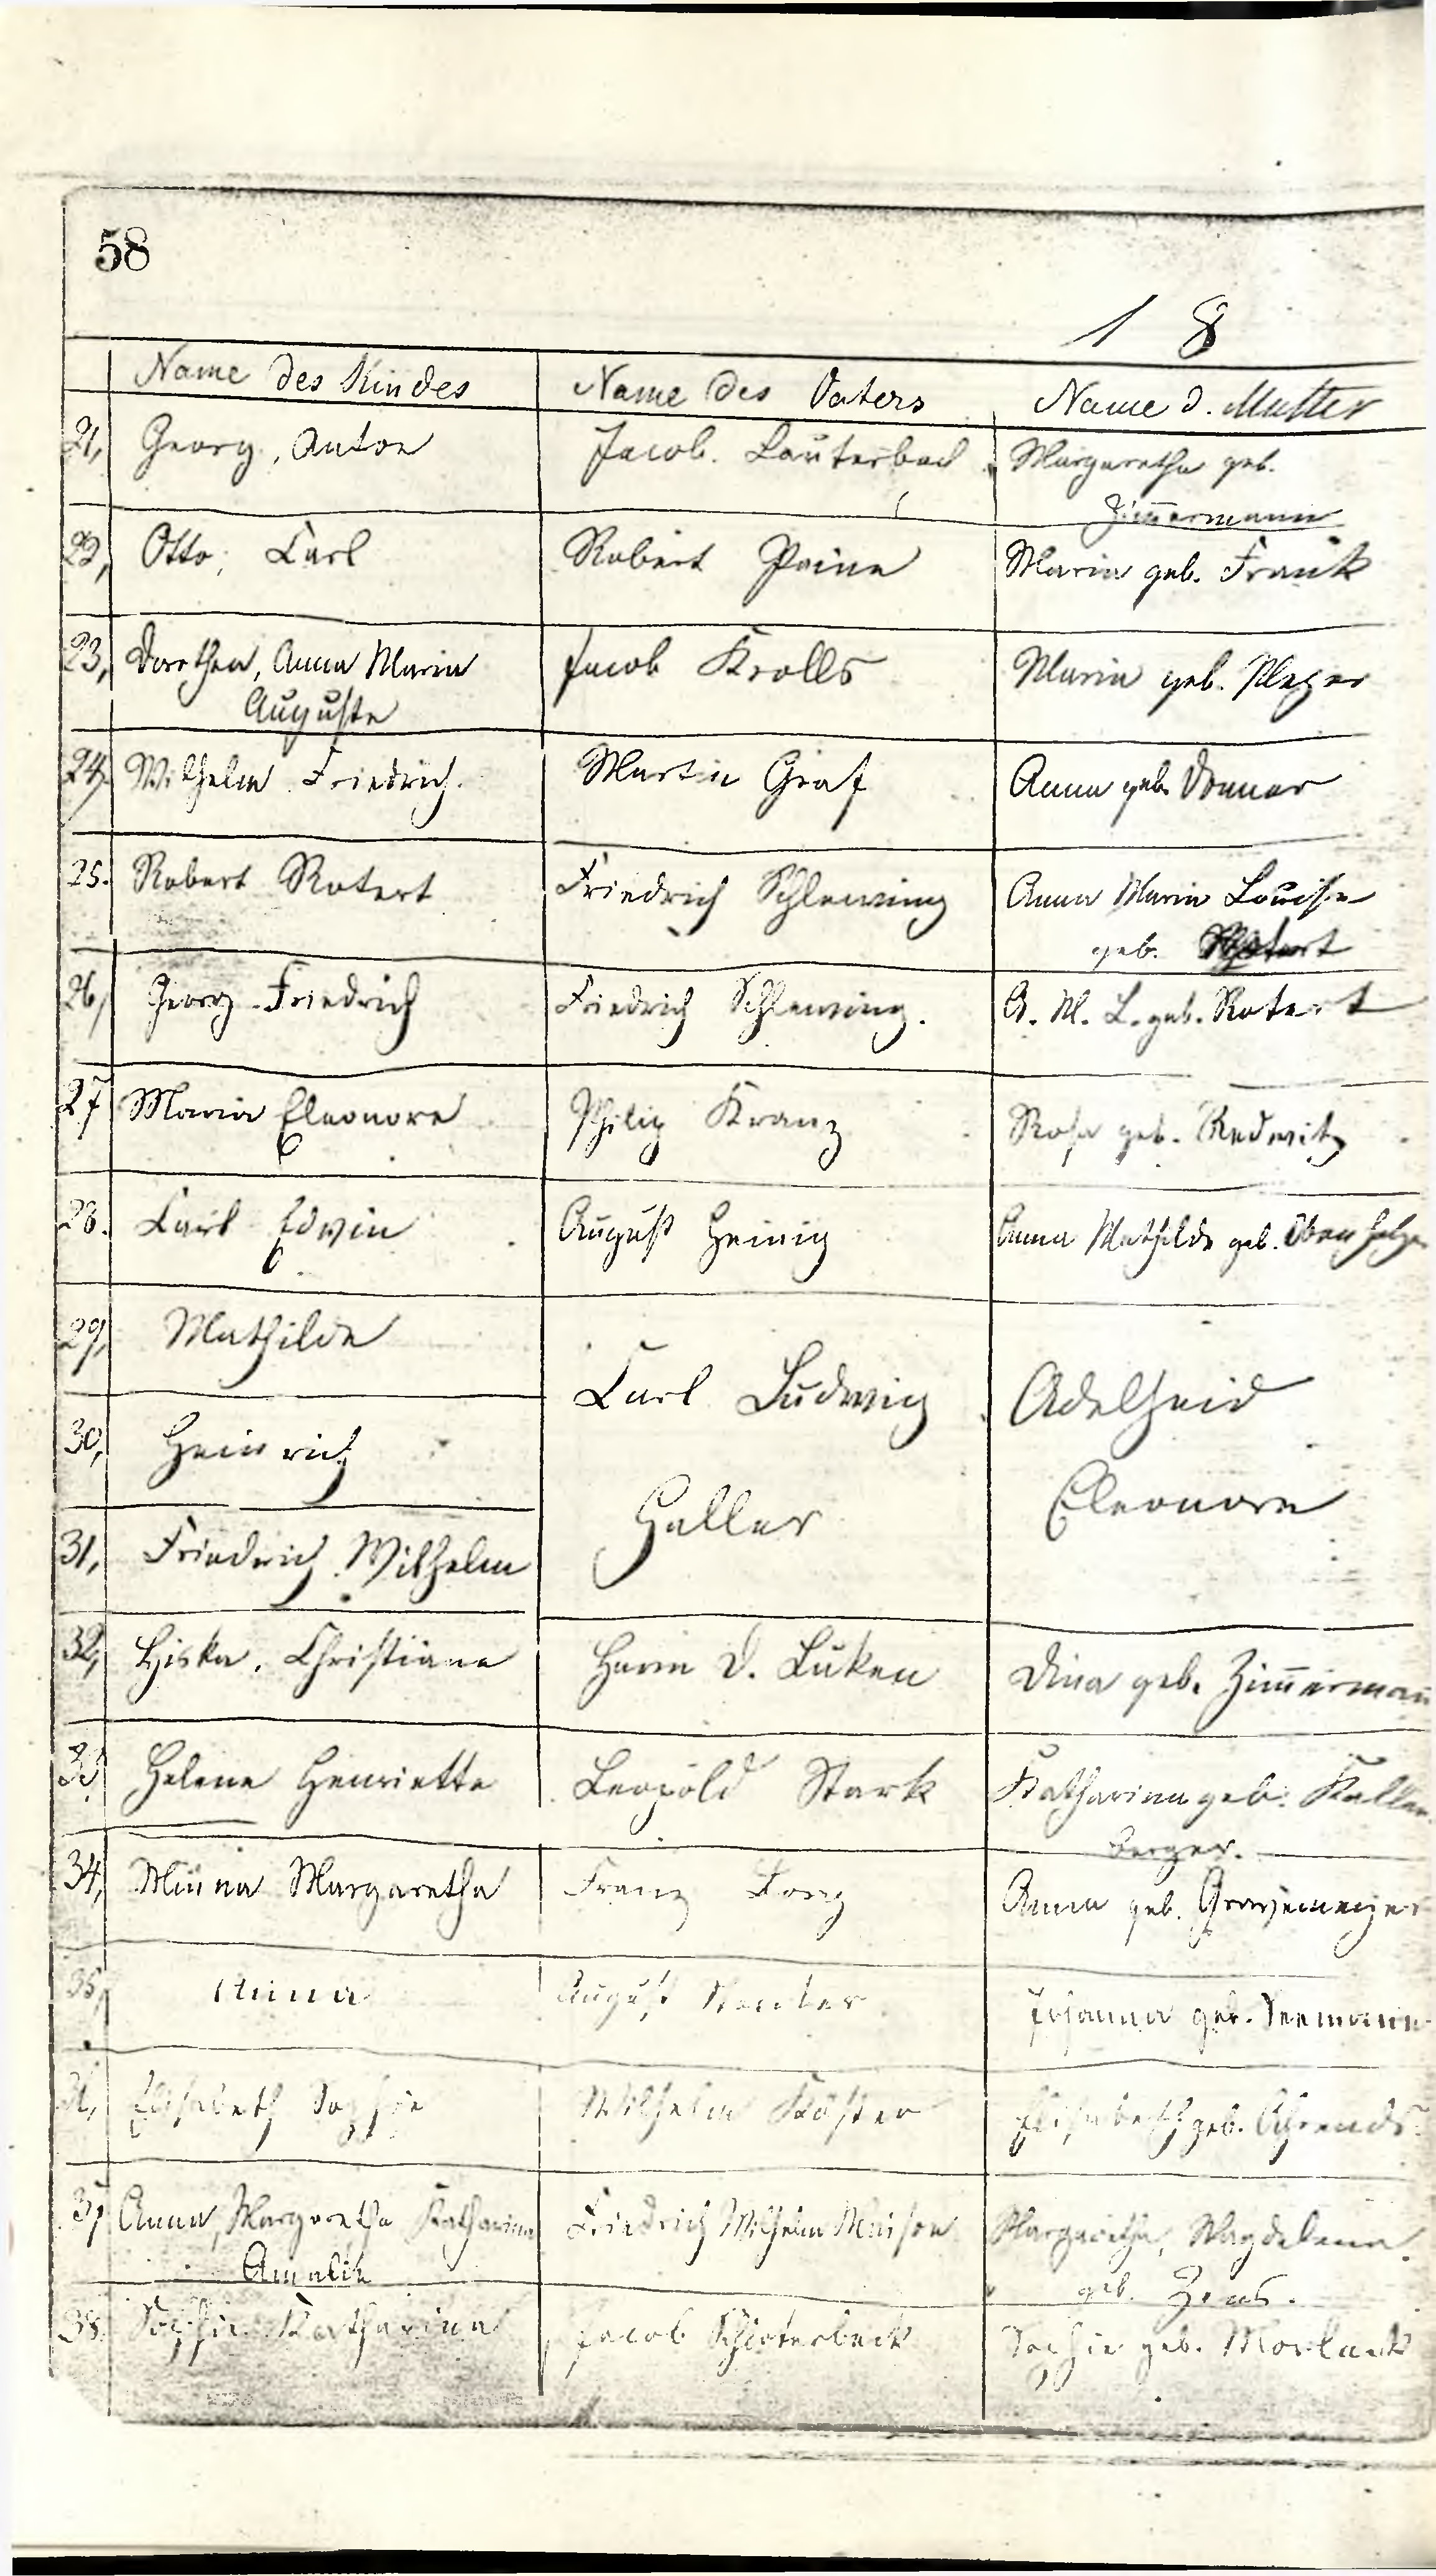 58
1 8
Name des Kindes Name des Vaters Name d. Mutter
21, Georg, Anton Jacob. Lauterbach Margaretha geb.
Zim̄ermann
22, Otto, Carl Robert Paine Maria geb. Frank
23, Dorothea, Anna Maria Jacob Krolls Maria geb. Meyer
Auguste
24, Wilhelm Friedrich. Martin Graf Anna geb. Donner
25. Robert Rotert Friedrich Schlewing Anna Maria Louise
geb. Rotert
26, Georg Friedrich Friedrich Schlewing. A. M. L. geb. Rotert
27 Maria Eleonore Philip Kranz Rosa geb. Redwitz
28. Carl Edwin August Heinig Anna Mathilde geb.
29, Mathilde
Carl Ludwig Adelheid
30, Heinrich
Haller Eleonore
31, Friedrich Wilhelm
32, Hiska, Christiane Harm D. Lüken Dina geb. Zim̄erman̄
33, Helene Henriette Leopold Stark Katharina geb. Kallen
berger.
34, Minna Margaretha Franz Anna geb.
35, Anna August Johanna geb. Seemann
36, Elisabeth Sophie Wilhelm Köster Elisabeth geb. Ahrends
37, Anna, Margaretha Katharina Friedrich Wilhelm Margaretha, Magdalena
Amalie geb.
38. Sophie Katharina Jacob Schioterbeck Sophie geb. Morlank